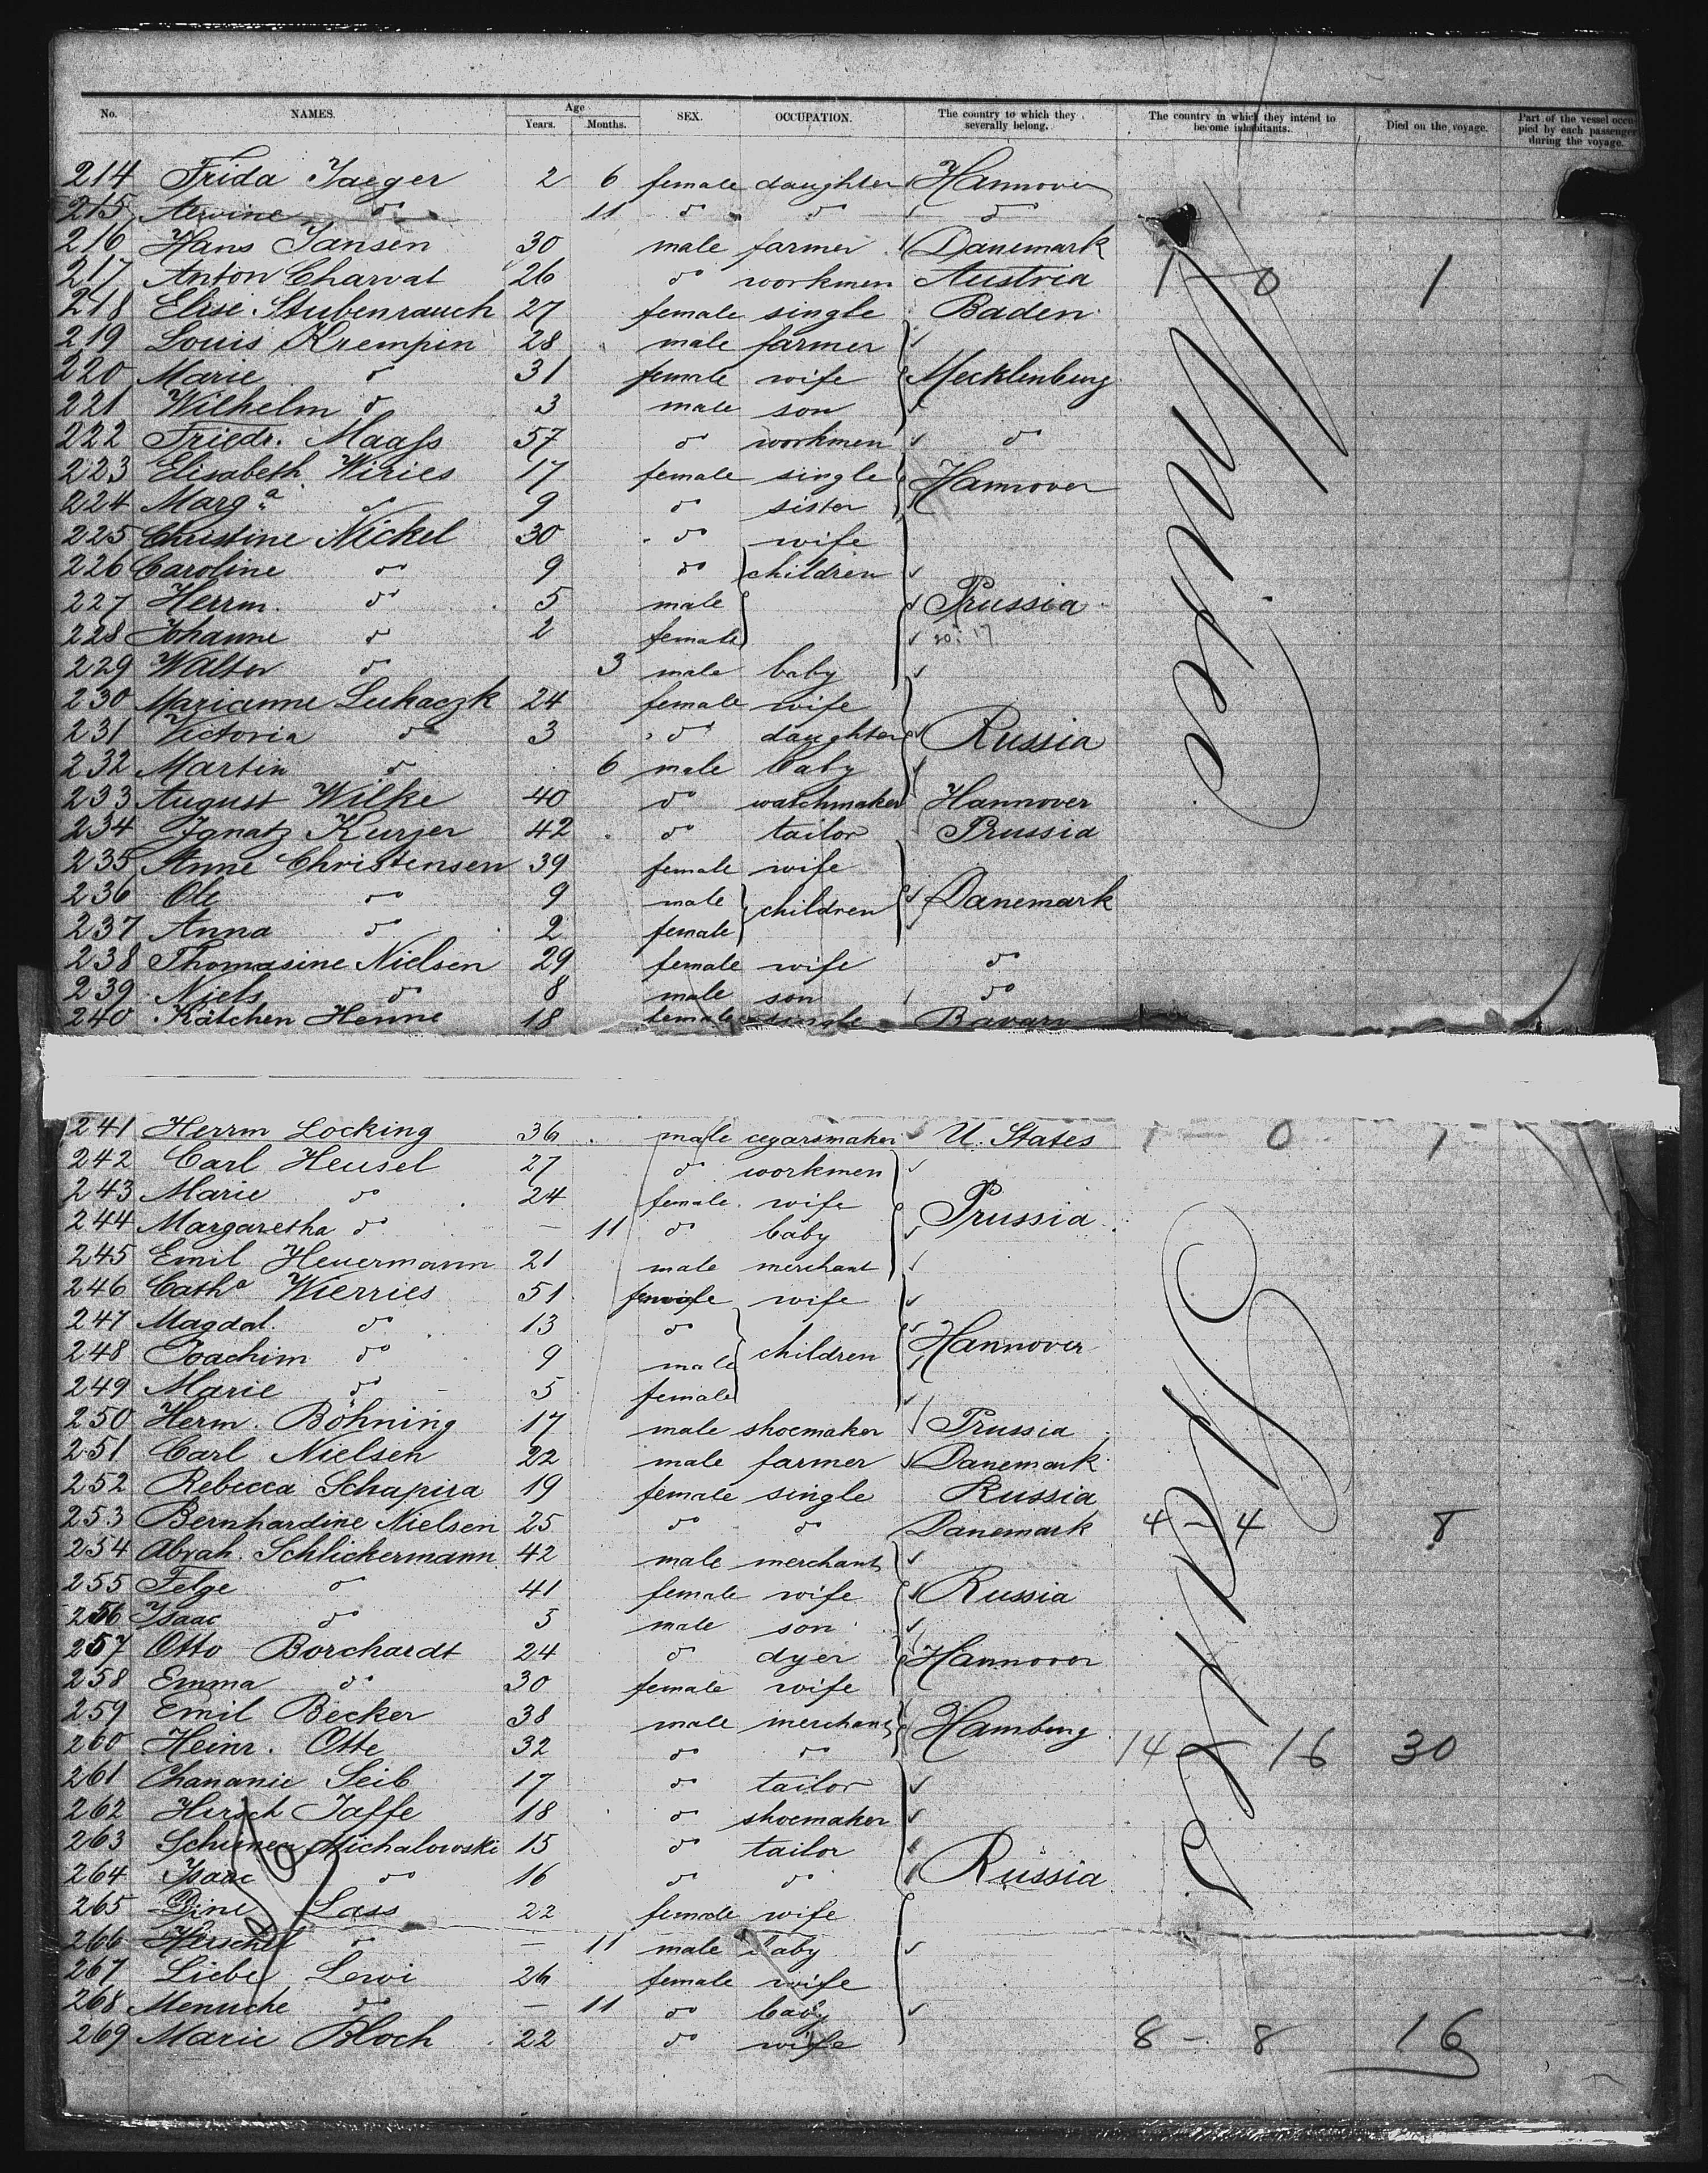 No. NAMES. Age Years. Months. SEX. OCCUPATION. The country to which they severally belong. The country in which they intend to become inhabitants. Died on the voyage. Part of the vessel occupied by each passenger during the voyage.
214 Frida Jaeger 2 6 female daughter Hannover
215 do 11 do do do
216 Hans Jansen 30 male farmer Danemark
217 Anton Charvat 26 do workmen Austria 1 - 0 1
218 Elise Stubenrauch 27 female single Baden
219 Louis Krempin 28 male farmer
220 Marie do 31 female wife Mecklenburg
221 Wilhelm do 3 male son
222 Friedr. Maass 57 do workmen do
223 Elisabeth Wiries 17 female single Hannover
224 Marga do 9 do sister
225 Christine Nickel 30 do wife
226 Caroline do 9 do children
227 Herrm. do 5 male Prussia
228 Johanne do 2 female
229 Walter do 3 male baby
230 Marianne Lukaczk 24 female wife
231 Victoria do 3 do daughter Russia
232 Martin do 6 male baby
233 August Wilke 40 do watchmaker Hannover
234 Ignatz Kurjer 42 do tailor Prussia
235 Anne Christensen 39 female wife
236 Ole do 9 male children Danemark
237 Anna do 2 female
238 Thomasine Nielsen 29 female wife do
239 Niels do 8 male son do
240 Kätchen Henne 18 female single
241 Herrm Locking 36 male cegarsmaker U. States 1 - 0 1
242 Carl Heusel 27 do workmen
243 Marie do 24 female wife Prussia
244 Margaretha do — 11 do baby
245 Emil Heuermann 21 male merchant
246 Catha Wierries 51 wife
247 Magdal. do 13 do children Hannover
248 Joachim do 9 male
249 Marie do 5 female
250 Herm. Böhning 17 male shoemaker Prussia
251 Carl Nielsen 22 male farmer Danemark
252 Rebecca Schapira 19 female single Russia
253 Bernhardine Nielsen 25 do do Danemark 4 - 4 8
254 Abrah. Schlickermann 42 male merchant
255 Felge do 41 female wife Russia
256 Isaac do 5 male son
257 Otto Borchardt 24 do dyer Hannover
258 Emma do 30 female wife
259 Emil Becker 38 male merchant Hamburg
260 Heinr. Otte 32 do do 14 16 30
261 Chananie Leib 17 do tailor
262 Hirsch Jaffe 18 do shoemaker
263 Michalowski 15 do tailor
264 Isaac do 16 do do Russia
265 Dine Lass 22 female wife
266 Herschel do — 11 male baby
267 Liebe Lewi 26 female wife
268 Menuche do — 11 do baby
269 Marie Bloch 22 do wife 8 - 8 16